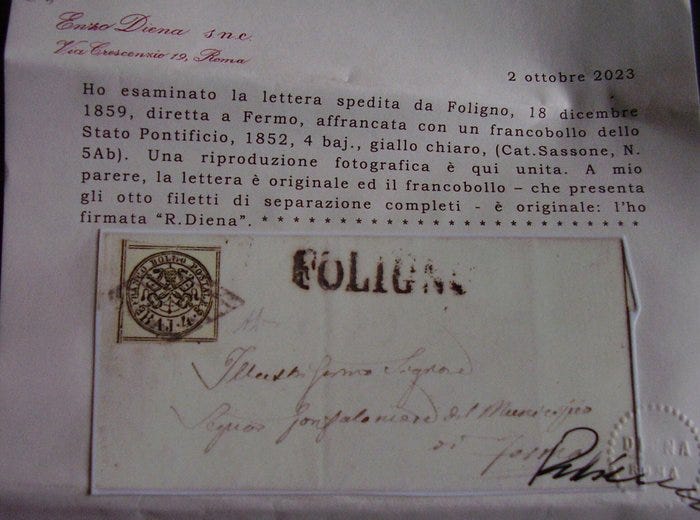 Enzo Diena s.n.c.
Via Crescenzio 19, Roma
2 ottobre 2023
Ho esaminato la lettera spedita da Foligno, 18 dicembre
1859, diretta a Fermo, affrancata con un francobollo dello
Stato Pontificio, 1852, 4 baj., giallo chiaro, (Cat.Sassone, N.
5Ab). Una riproduzione fotografica è qui unita. A mio
parere, la lettera è originale ed il francobollo – che presenta
gli otto filetti di separazione completi - è originale: l'ho
firmata “R.Diena”. * * * * * * * * * * * * * * * * * * * * * * * * *
FOLIGNO
FRANCO BOLLO POSTALE
BAJ. 4
Illustrissimo Signore
Signor Gonfaloniere del Municipio
di Fermo
DIENA
ROMA